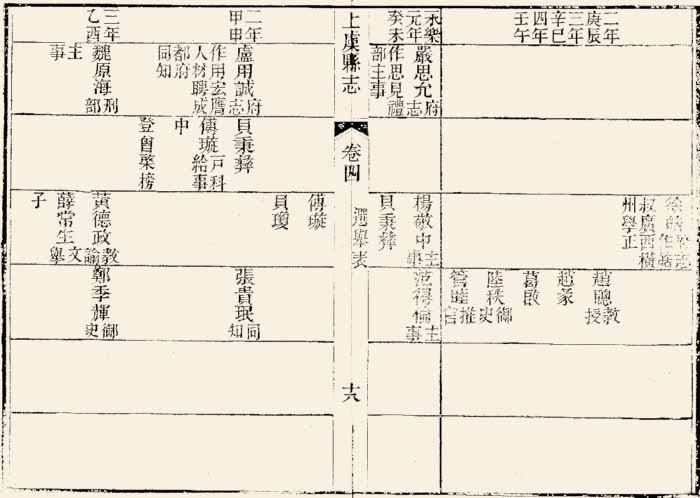 二年
庚辰
三年
辛巳
四年
壬午
永樂
元年
癸未
嚴思允府志
作思見禮
部主事
叔廣西橫
州學正
楊敬中主事
貝秉彝
趙聰教授
趙彖
葛啟
陸秩御史
管睦推官
范得倫主事
上虞縣志
卷四
選舉表
二年
甲申
三年
乙酉
盧用誠府志
作用宏膺
人材聘成
都府
同知
魏原海刑部
主事
貝秉彝
傅璇戶科給事
中
登曾棨榜
傅璇
貝瓊
黃德政教諭
薛常生文學
子
張貴珉同知
鄭季輝御史